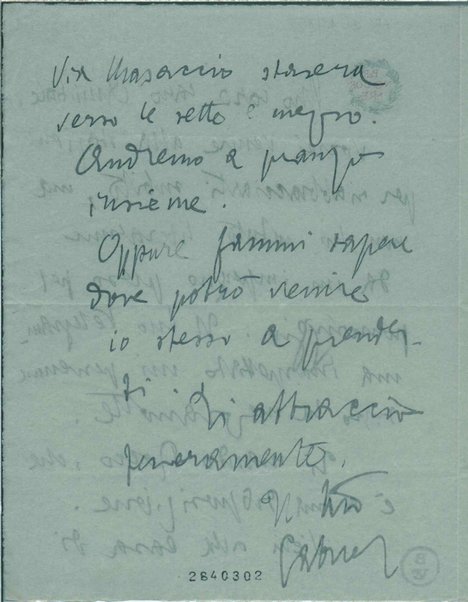 Via Masaccio stasera
verso le sette e mezzo.
Andremo a pranzo
insieme.
Oppure fammi sapere
dove potrò venire
io stesso a prender-
ti. Ti abbraccio
teneramente.
Il tuo
Gabriel
2840302